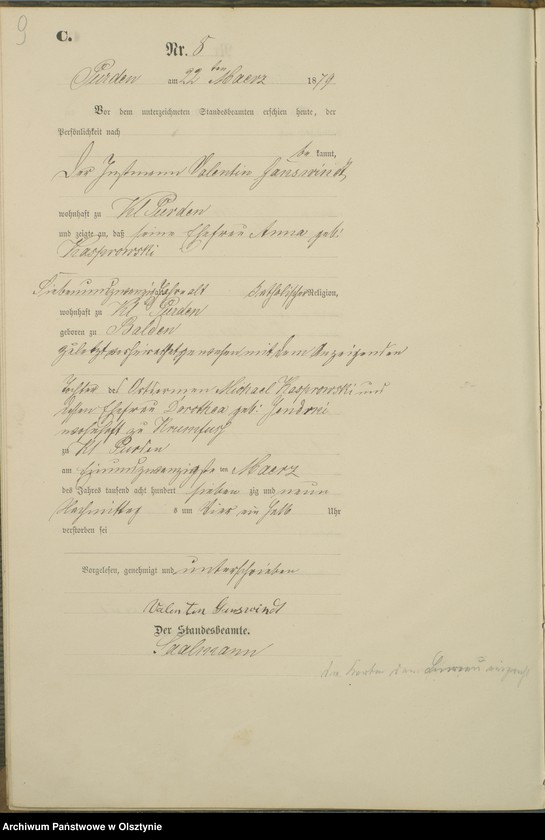 9
C.
Nr. 8
Purden am 22ten Maerz 1879
Vor dem unterzeichneten Standesbeamten erschien heute, der
Persönlichkeit nach
be kannt,
Der Instmann Valentin Ganswindt,
wohnhaft zu Kl Purden
und zeigte an, daß seine Ehefrau Anna geb:
Kasprowski
Siebenundzwanzig Jahre alt katholischer Religion,
wohnhaft zu Kl Purden
geboren zu Balden
zuletzt verheirathet gewesen mit dem Anzeigenden
Tochter des Michael Kasprowski und
dessen Ehefrau Dorothea geb:
wohnhaft zu
zu Kl Purden
am Einundzwanzigsten Maerz
des Jahres tausend acht hundert sieben zig und neun
Nachmittag s um vier ein halb Uhr
verstorben sei
Vorgelesen, genehmigt und unterschrieben
Valenten Ganswindt
Der Standesbeamte.
Saalmann
Archiwum Państwowe w Olsztynie